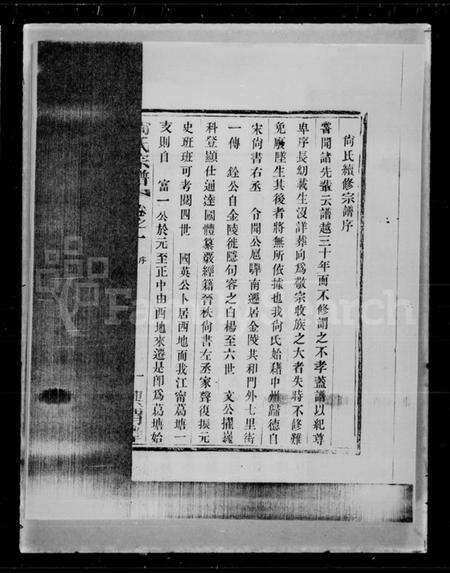 尙氏續修宗譜序
嘗聞諸先輩云譜越三十年而不修謂之不孝蓋譜以紀尊
卑序長幼載生沒詳葬向爲敬宗收族之大者失時不修難
免廢墜生其後者將無所依據也我尙氏始籍中州歸德自
宋尙書右丞 令聞公扈驆南遷居金陵其和門外七里街
一傳 鍂公自金陵徙隱句容之白楊至六世 文公擢巍
科登顯仕通達國體纂嚴經籍晉秩尙書左丞家聲復振元
史班班可考閱四世 國英公卜居西地而我江甯葛塘一
支則自 富一公於元至正中由西地來遷是卽爲葛塘始
尙氏宗譜 卷之一 序 一
FamilySearch